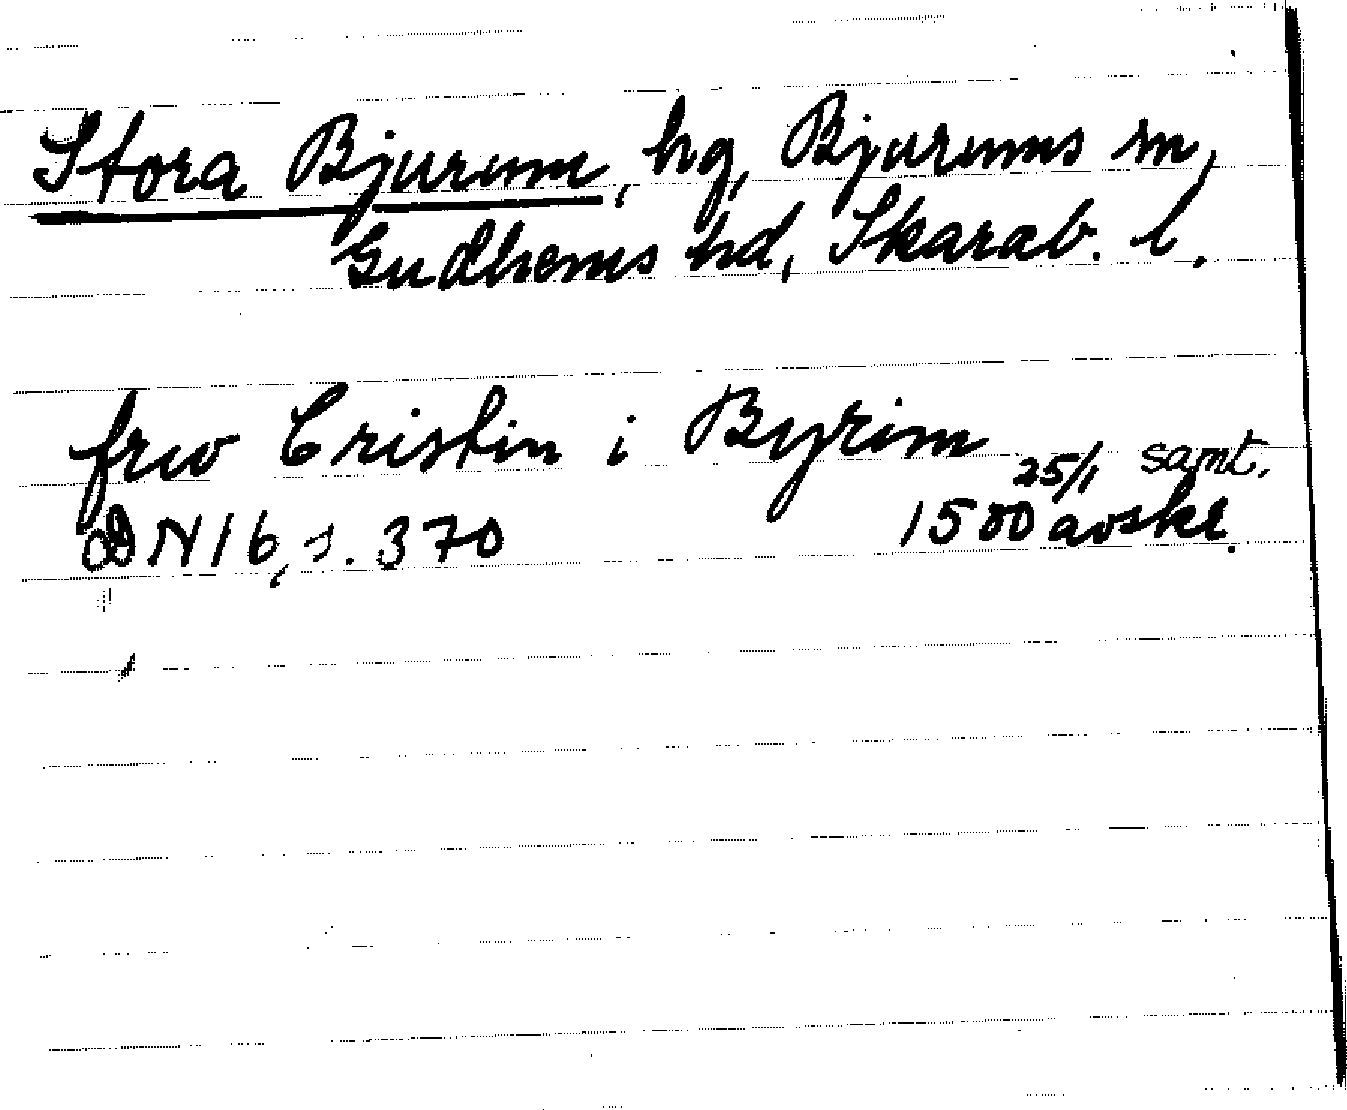 Stora Bjurum, hg, Bjurums sn,
Gudhems hd, Skarab. l.
frw Cristin i Byrim 25/1 samt.
N 16, s. 370 1500 avskr.